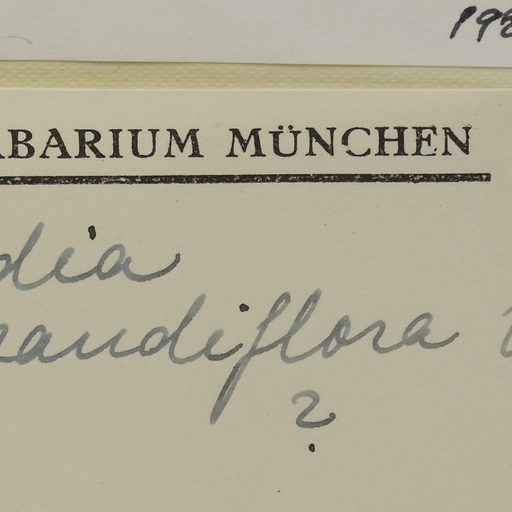 198
RBARIUM MÜNCHEN
dia
randiflora
?